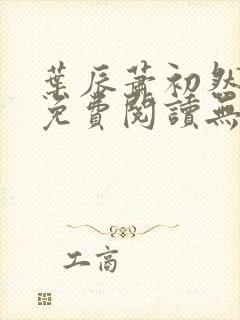 葉辰蕭初然
免費閱讀無
工商